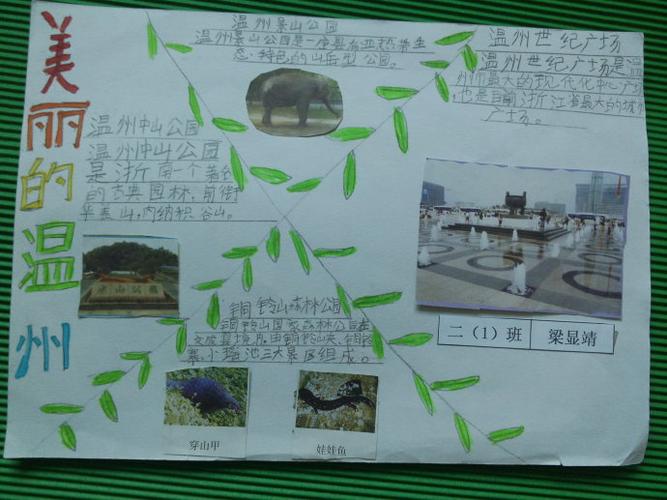 美丽的温州
温州景山公园
温州景山公园是一座具有亚热带生
态特色的山丘型公园。
温州世纪广场
温州世纪广场是温
州市最大的现代化中心广场
也是目前浙江省最大的城市
广场。
温州中山公园
温州中山公园
是浙南一个著名
的古典园林,前衔
华盖山,内纳积谷山。
中山公园
二（1）班
梁显靖
铜铃山森林公园
铜铃山国家森林公园在
文成县境内由铜铃山夹、铜铃
寨,小瑶池三大景区组成。
穿山甲
娃娃鱼